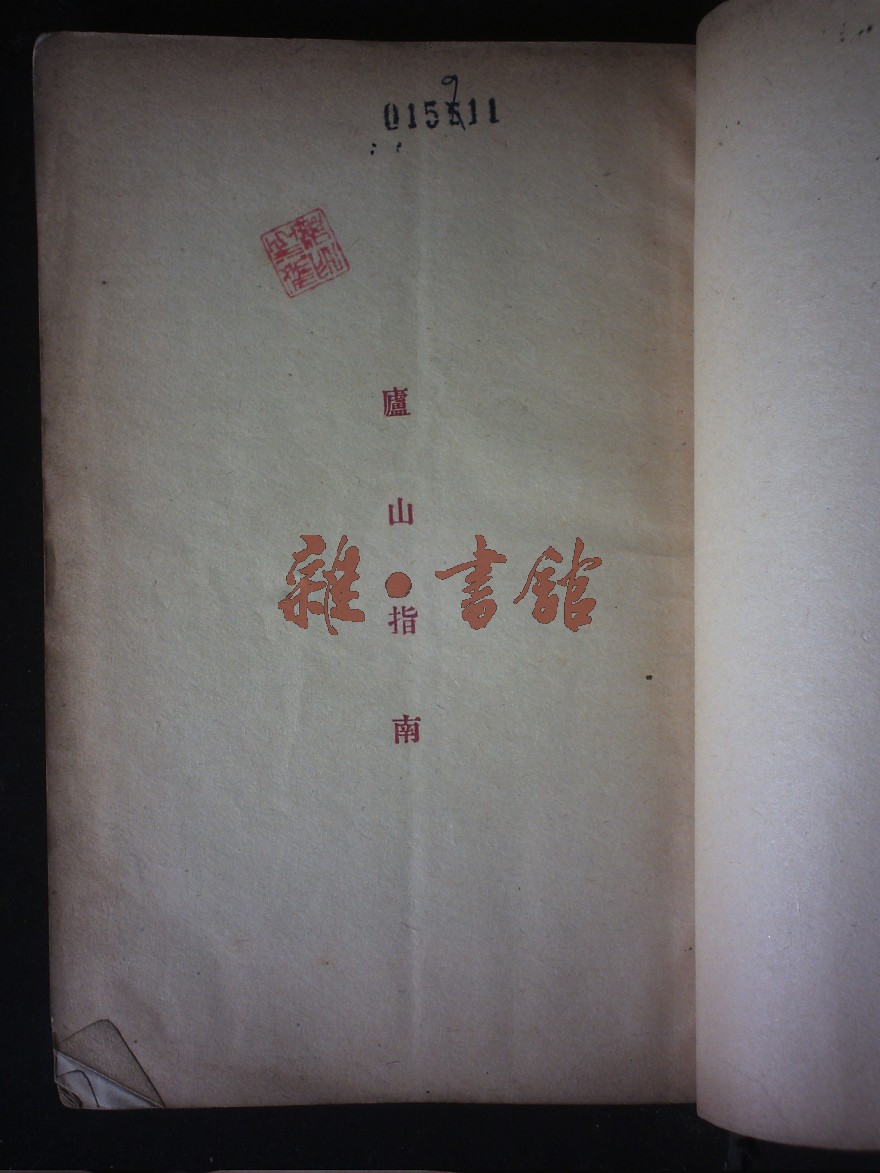 9
015611
廬山指南
雜·書館